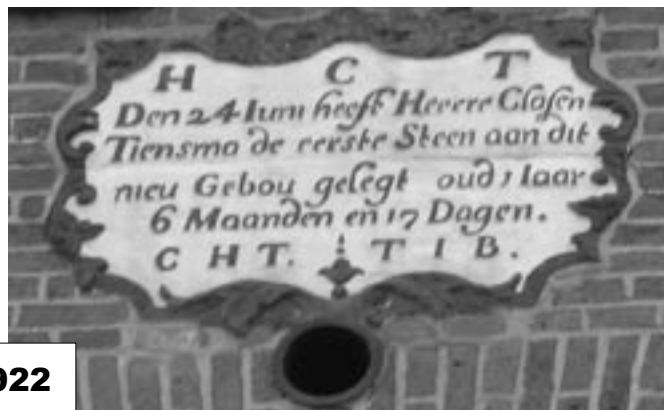 H C T
Den 24 Iuni heeft Herere Clasen
Tiensma de eerste Steen aan dit
nieu Gebou gelegt oud 1 Iaar
6 Maanden en 17 Dagen.
C H T. T I B.
922